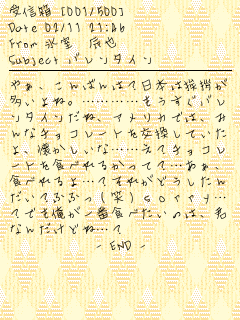 受信箱 [001/500]
Date 02/11 21:46
From 氷室 辰也
Subject バレンタイン
やぁ、こんばんは？日本は挨拶が
多いよね。…………もうすぐバレ
ンタインだね、アメリカでは、み
んなチョコレートを交換していた
よ、懐かしいな……え？チョコレ
ートを食べれるかって？…あぁ、
食べれるよ…？それがどうしたん
だい？ふふっ(笑)sorry…
？でも俺が一番食べたいのは、君
なんだけどね…？
- END -